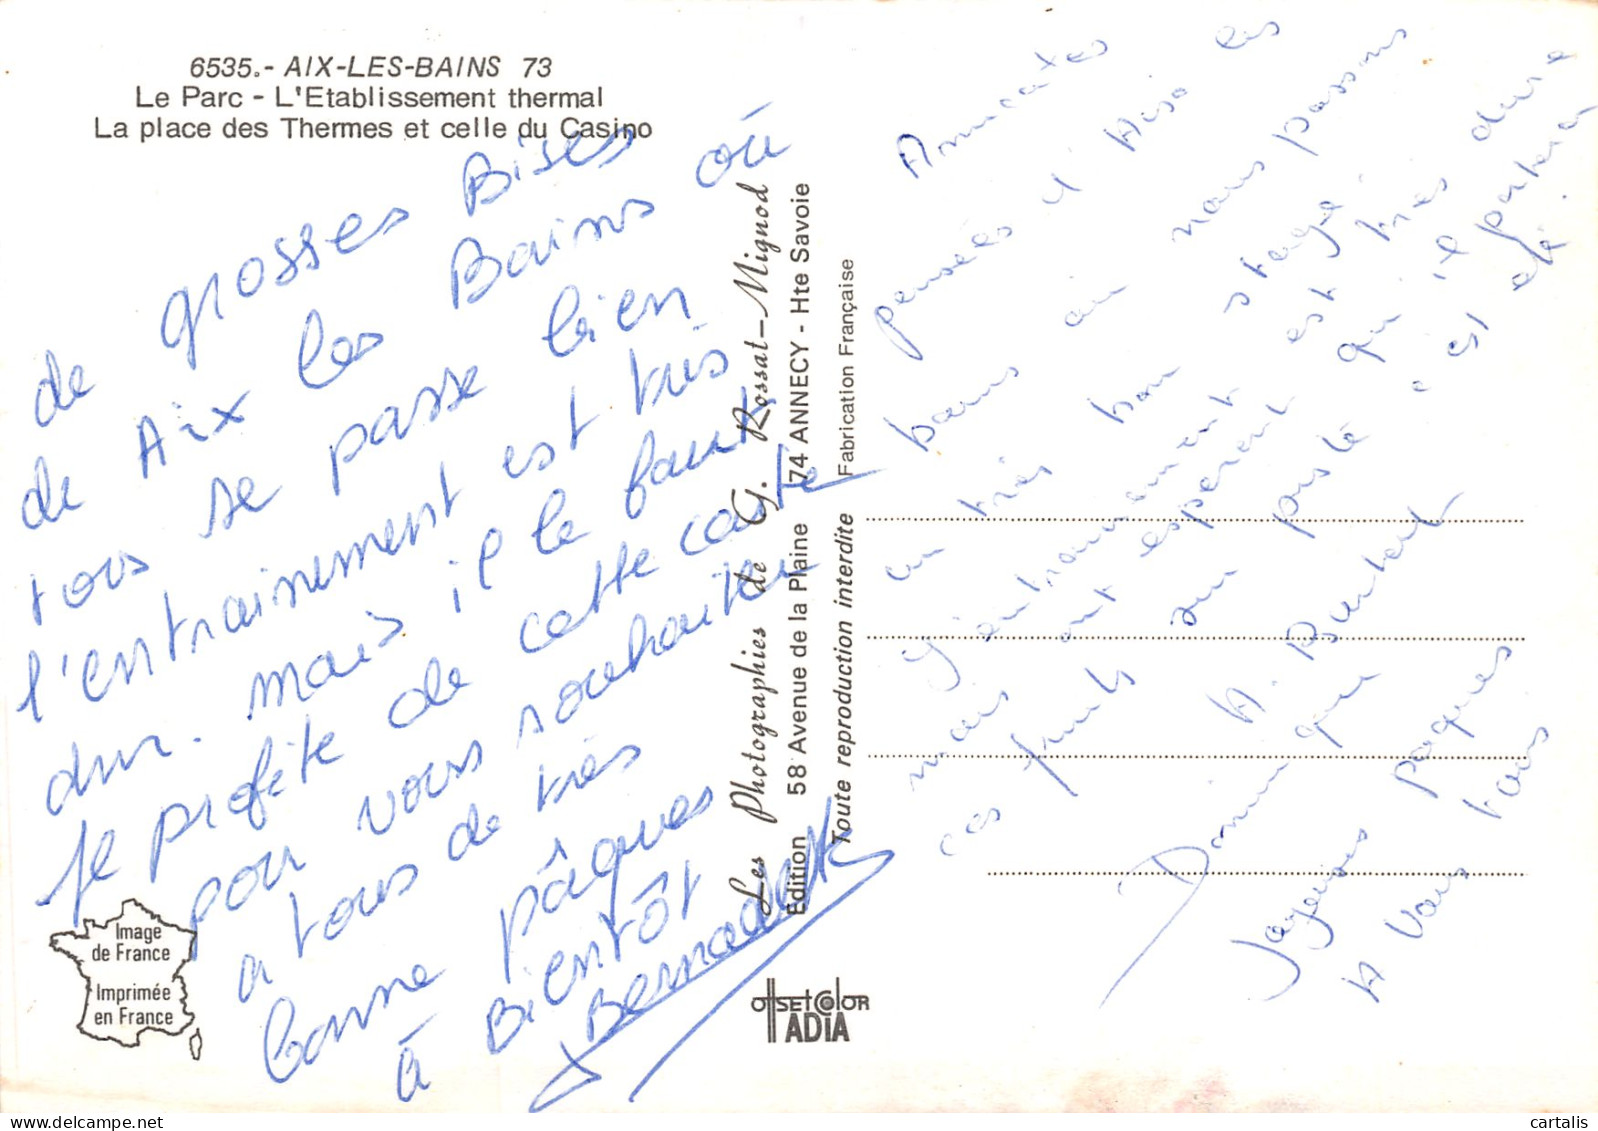 6535.- AIX-LES-BAINS 73
Le Parc - L'Etablissement thermal
La place des Thermes et celle du Casino
de grosses Bises
de Aix les Bains où
tous se passe bien
l'entrainement est très
dur. mais il le faut
Je profite de cette carte
pour vous souhaiter
a tous de très
bonne pâques
à Bientôt
Bernadette
Image
de France
Imprimée
en France
Les Photographies de G. Rossat-Mignod
Edition 58 Avenue de la Plaine 74 ANNECY - Hte Savoie
Toute reproduction interdite Fabrication Française
OFFSET COLOR
ADIA
Amicales
pensées d' les
bains où nous passons
un très bon stage
l'entrainement est très dure
mais ont esperent qu'il portera
ces fruits sur piste c'est été.
A Bientot
Dominique
Joyeuses paques
A Vous tous
cartalis